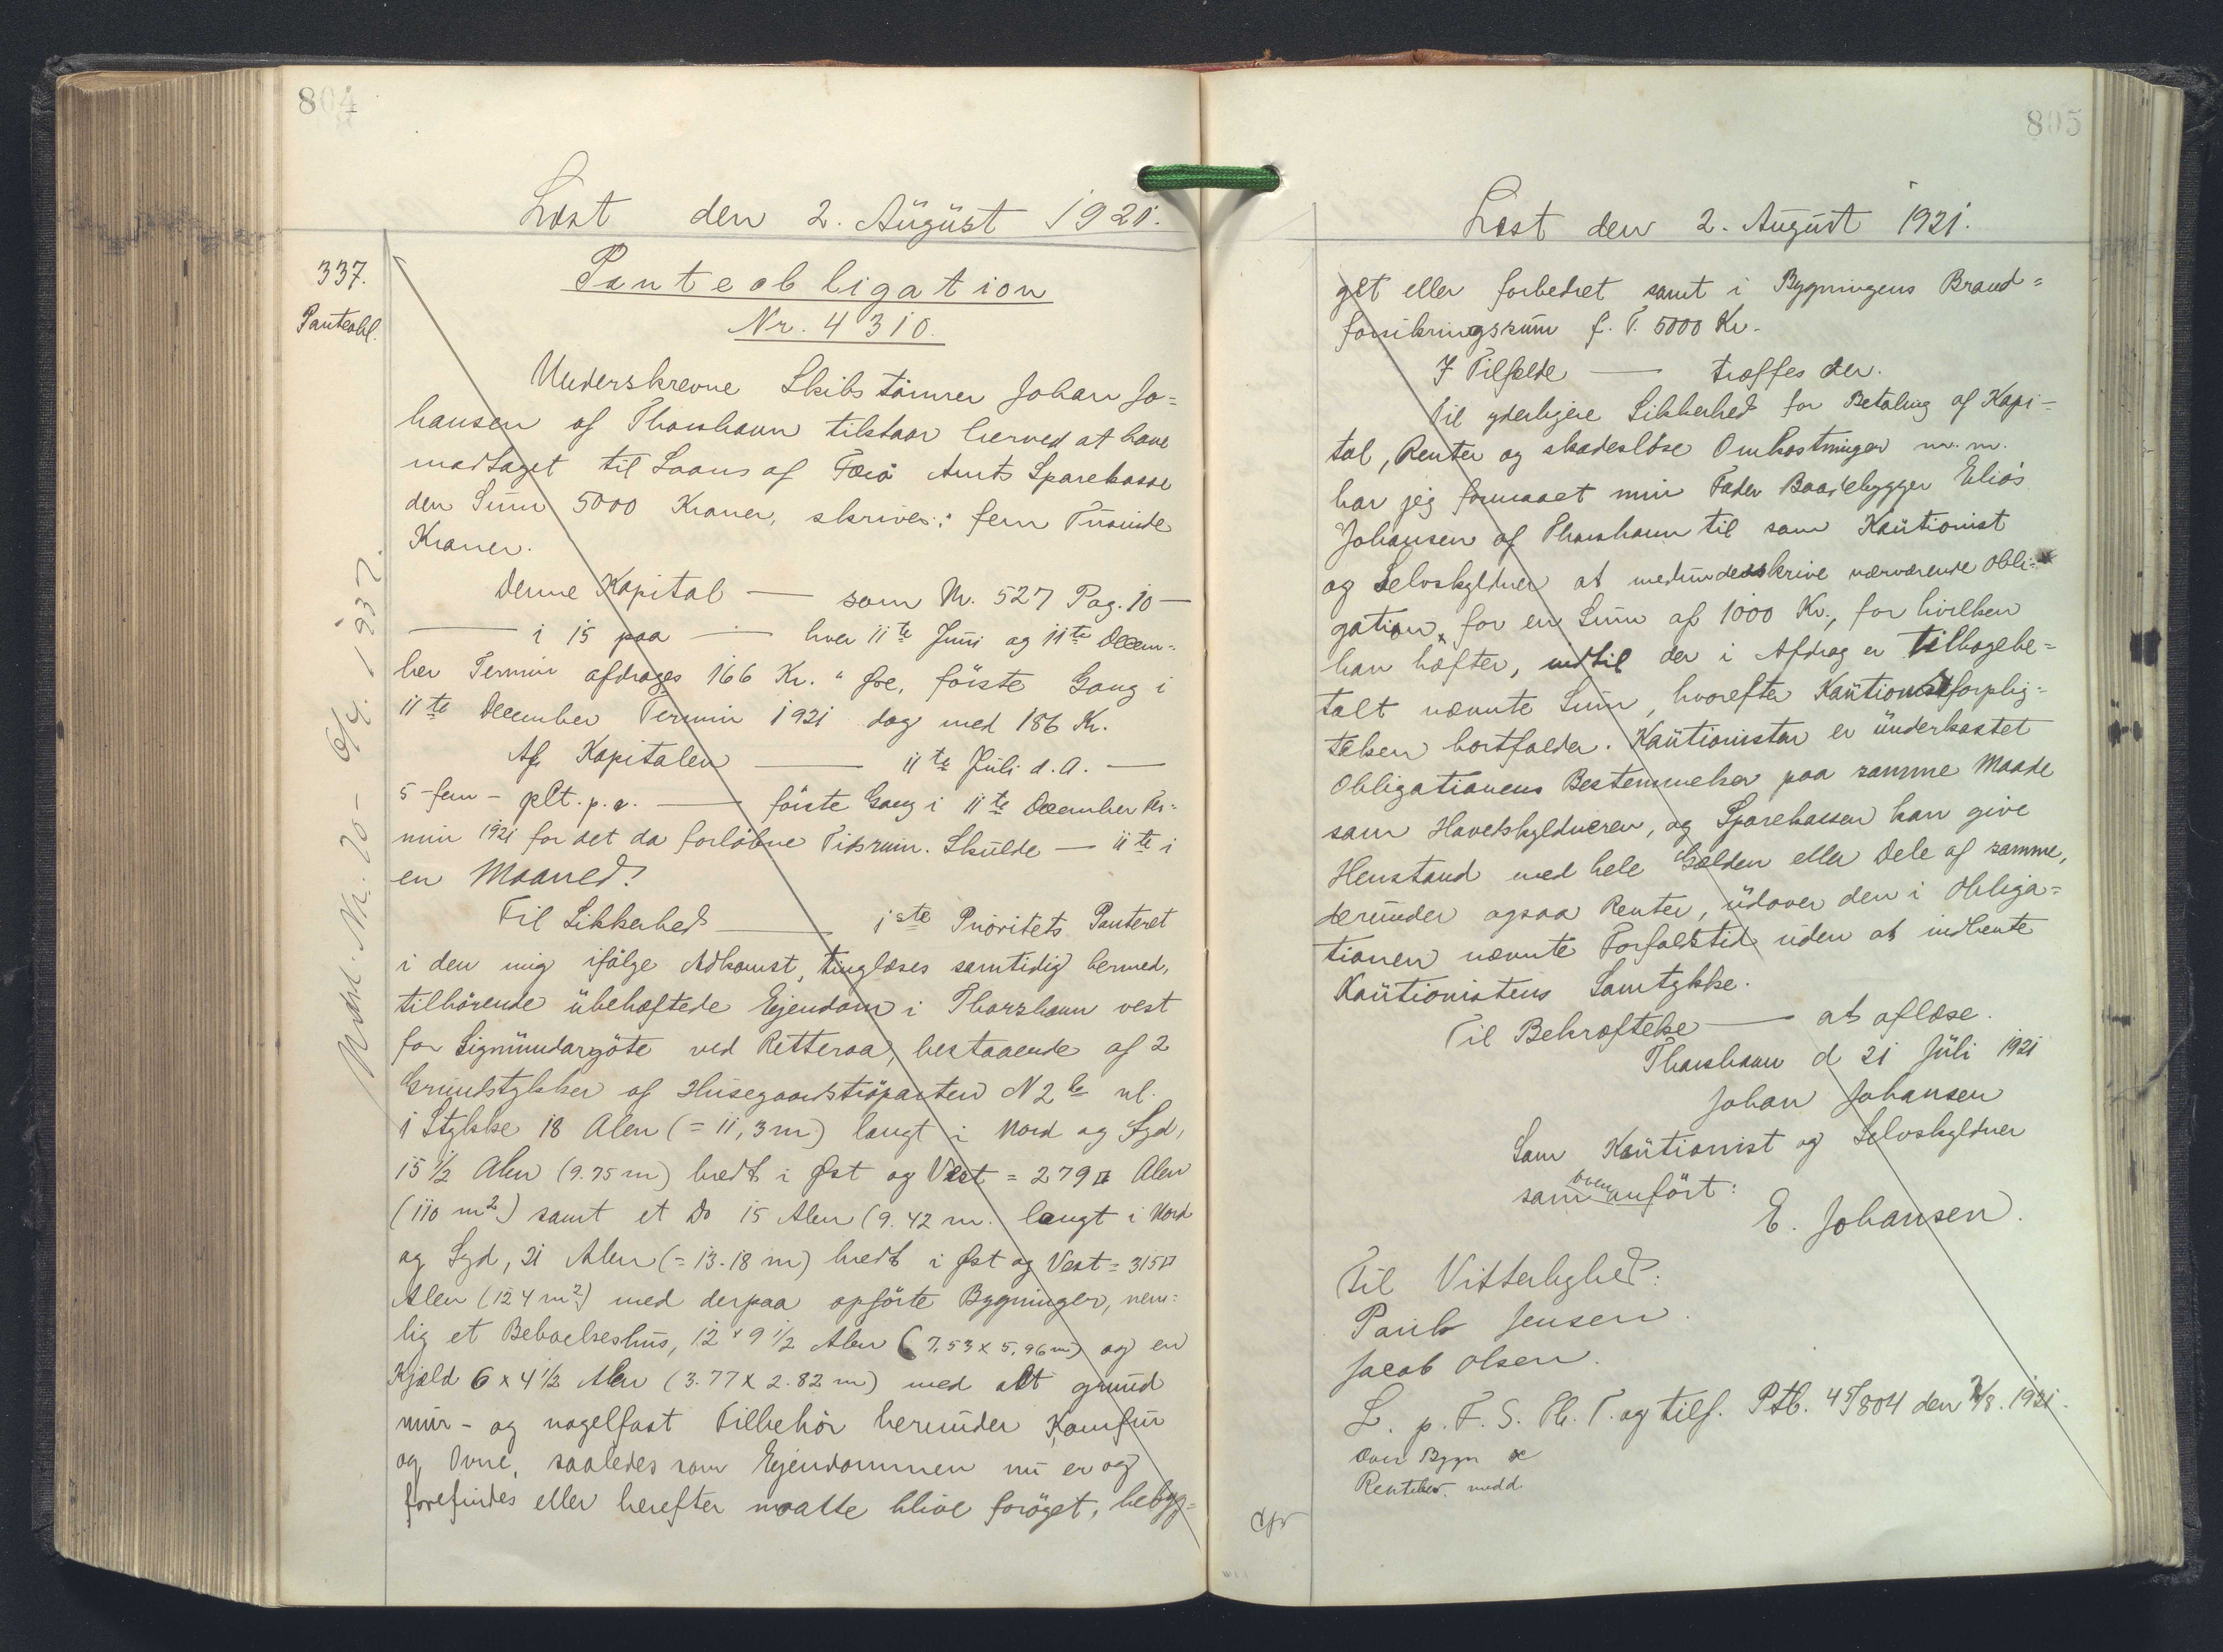 804
Læst den 2. August 1921.
337.
Panteobl.
Panteobligation
Nr. 4310.
Underskrevne Skibstømrer Johan Jo=
hansen af Thorshavn tilstaar herved at have
modtaget til Laans af Færø Amts Sparekasse
den Sum 5000 Kroner, skriver: fem Tusinde
Kroner.
Denne Kapital — som Nr. 527 Pag. 10 —
— i 15 paa — hver 11te Juni og 11te Decem=
ber Termin afdrages 166 Kr. " Øre, første Gang i
11te December Termin 1921 dog med 186 Kr.
Af Kapitalen — 11te Juli d.A. —
5 - fem - pCt. p.a. — første Gang i 11te December Ter=
min 1921 for det da forløbne Tidsrum. Skulde — 11te i
en Maaned.
Til Sikkerhed — 1ste Prioritets Panteret
i den mig ifølge Adkomst, tinglæses samtidig hermed,
tilhørende übehæftede Ejendom i Thorshavn vest
for Sigmundargøte ved Retteraa, bestaaende af 2
Grundstykker af Husegaardstrøparten N 2 b nl.
1 Stykke 18 Alen (= 11,3 m) langt i Nord og Syd,
15 1/2 Alen (9.75 m) bredt i Øst og Vest = 279 □ Alen
(110 m2) samt et Do 15 Alen (9.42 m. langt i Nord
og Syd, 21 Alen (= 13.18 m) bredt i Øst og Vest = 315 □
Alen (124 m2) med derpaa opførte Bygninger, nem=
lig et Beboelseshus, 12 x 9 1/2 Alen (7,53 x 5,96 m) og en
Kjæld 6 x 4 1/2 Alen (3.77 x 2.82 m) med alt grund
mur- og nagelfast Tilbehør herunder Komfur
og Ovne, saaledes som Ejendommen nu er og
forefindes eller herefter maatte blive forøget, bebyg=
Mdst. Nr. 20 - 6/4. 1937.
805
Læst den 2. August 1921.
get eller forbedret samt i Bygningens Brand=
forsikringssum f. T. 5000 Kr.
I Tilfælde — træffes der.
Til yderligere Sikkerhed for Betaling af Kapi=
tal, Renter og skadesløse Omkostninger m.m.
har jeg formaaet min Fader Baadebygger Elias
Johansen af Thorshavn til som Kautionist
og Selvskyldner at medunderskrive nærværende Obli=
gation, for en Sum af 1000 Kr., for hvilken
han hæfter, indtil der i Afdrag er tilbagebe=
talt nævnte Sum, hvorefter Kautionsforplig=
telsen bortfalder. Kautionisten er underkastet
Obligationens Bestemmelser paa samme Maade
som Hovedskyldneren, og Sparekassen kan give
Henstand med hele Gælden eller Dele af samme,
derunder ogsaa Renter, udover den i Obliga=
tionen nævnte Forfaldstid uden at indhente
Kautionistens Samtykke.
Til Bekræftelse — at aflæse.
Thorshavn d 21 Juli 1921
Johan Johansen
Som Kautionist og Selvskyldner
som oven anført:
E. Johansen.
Til Vitterlighed:
Poul Jensen.
Jacob Olsen.
L. p. F. S. Th. T. og tilf. Ptb. 45/804 den 2/8. 1921.
Over Bygn